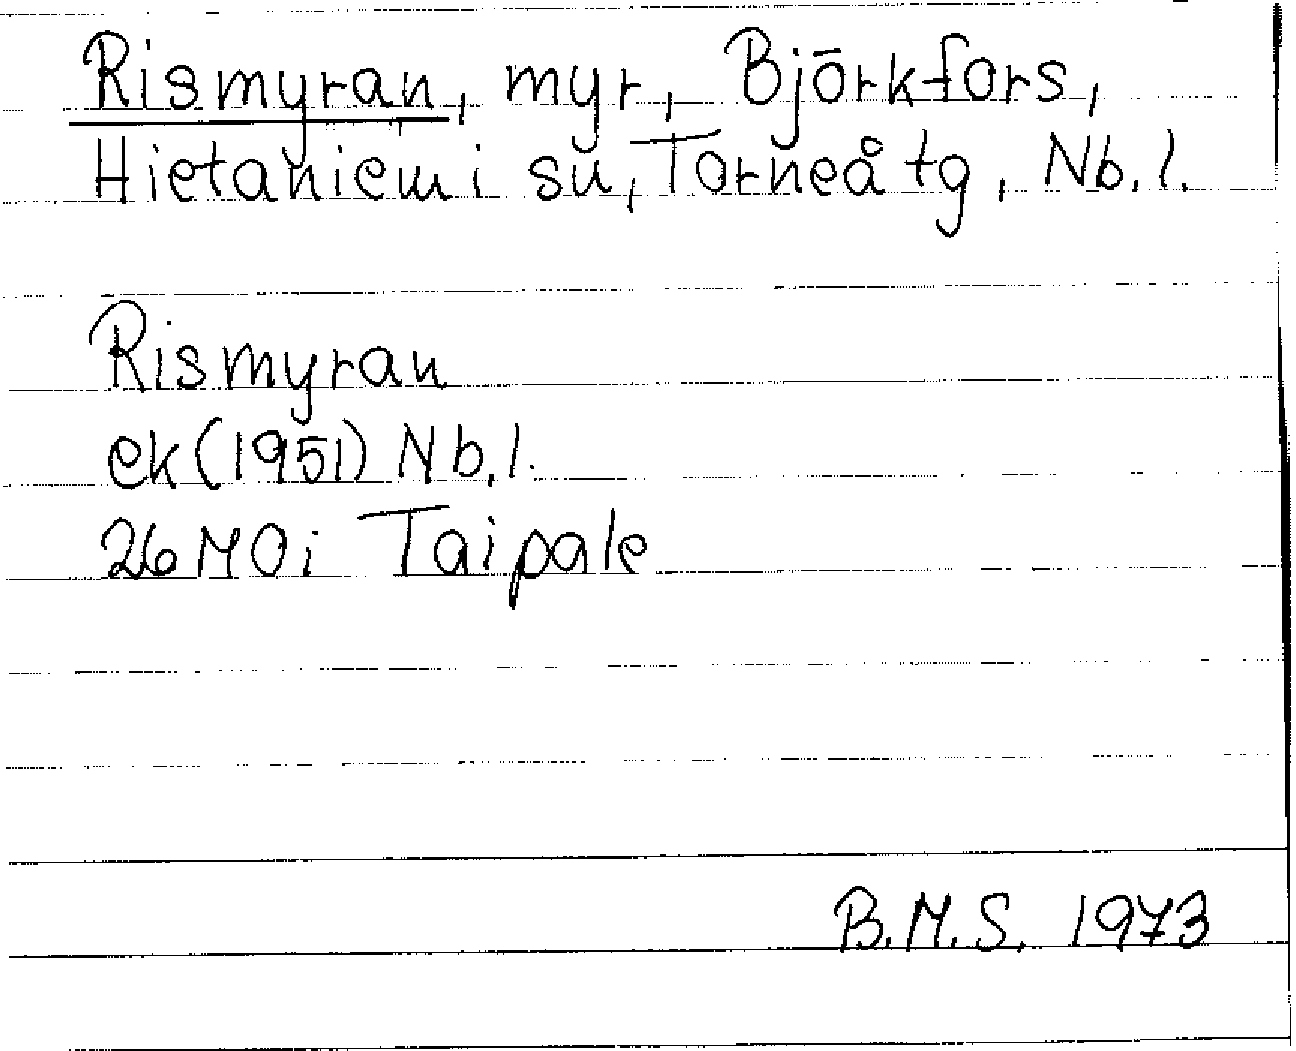 Rismyran, myr, Björkfors,
Hietaniemi sn, Torneå tg, Nb. l.
Rismyran
ek (1951) Nb. l.
26 M 0 i Taipale
B.M.S. 1973